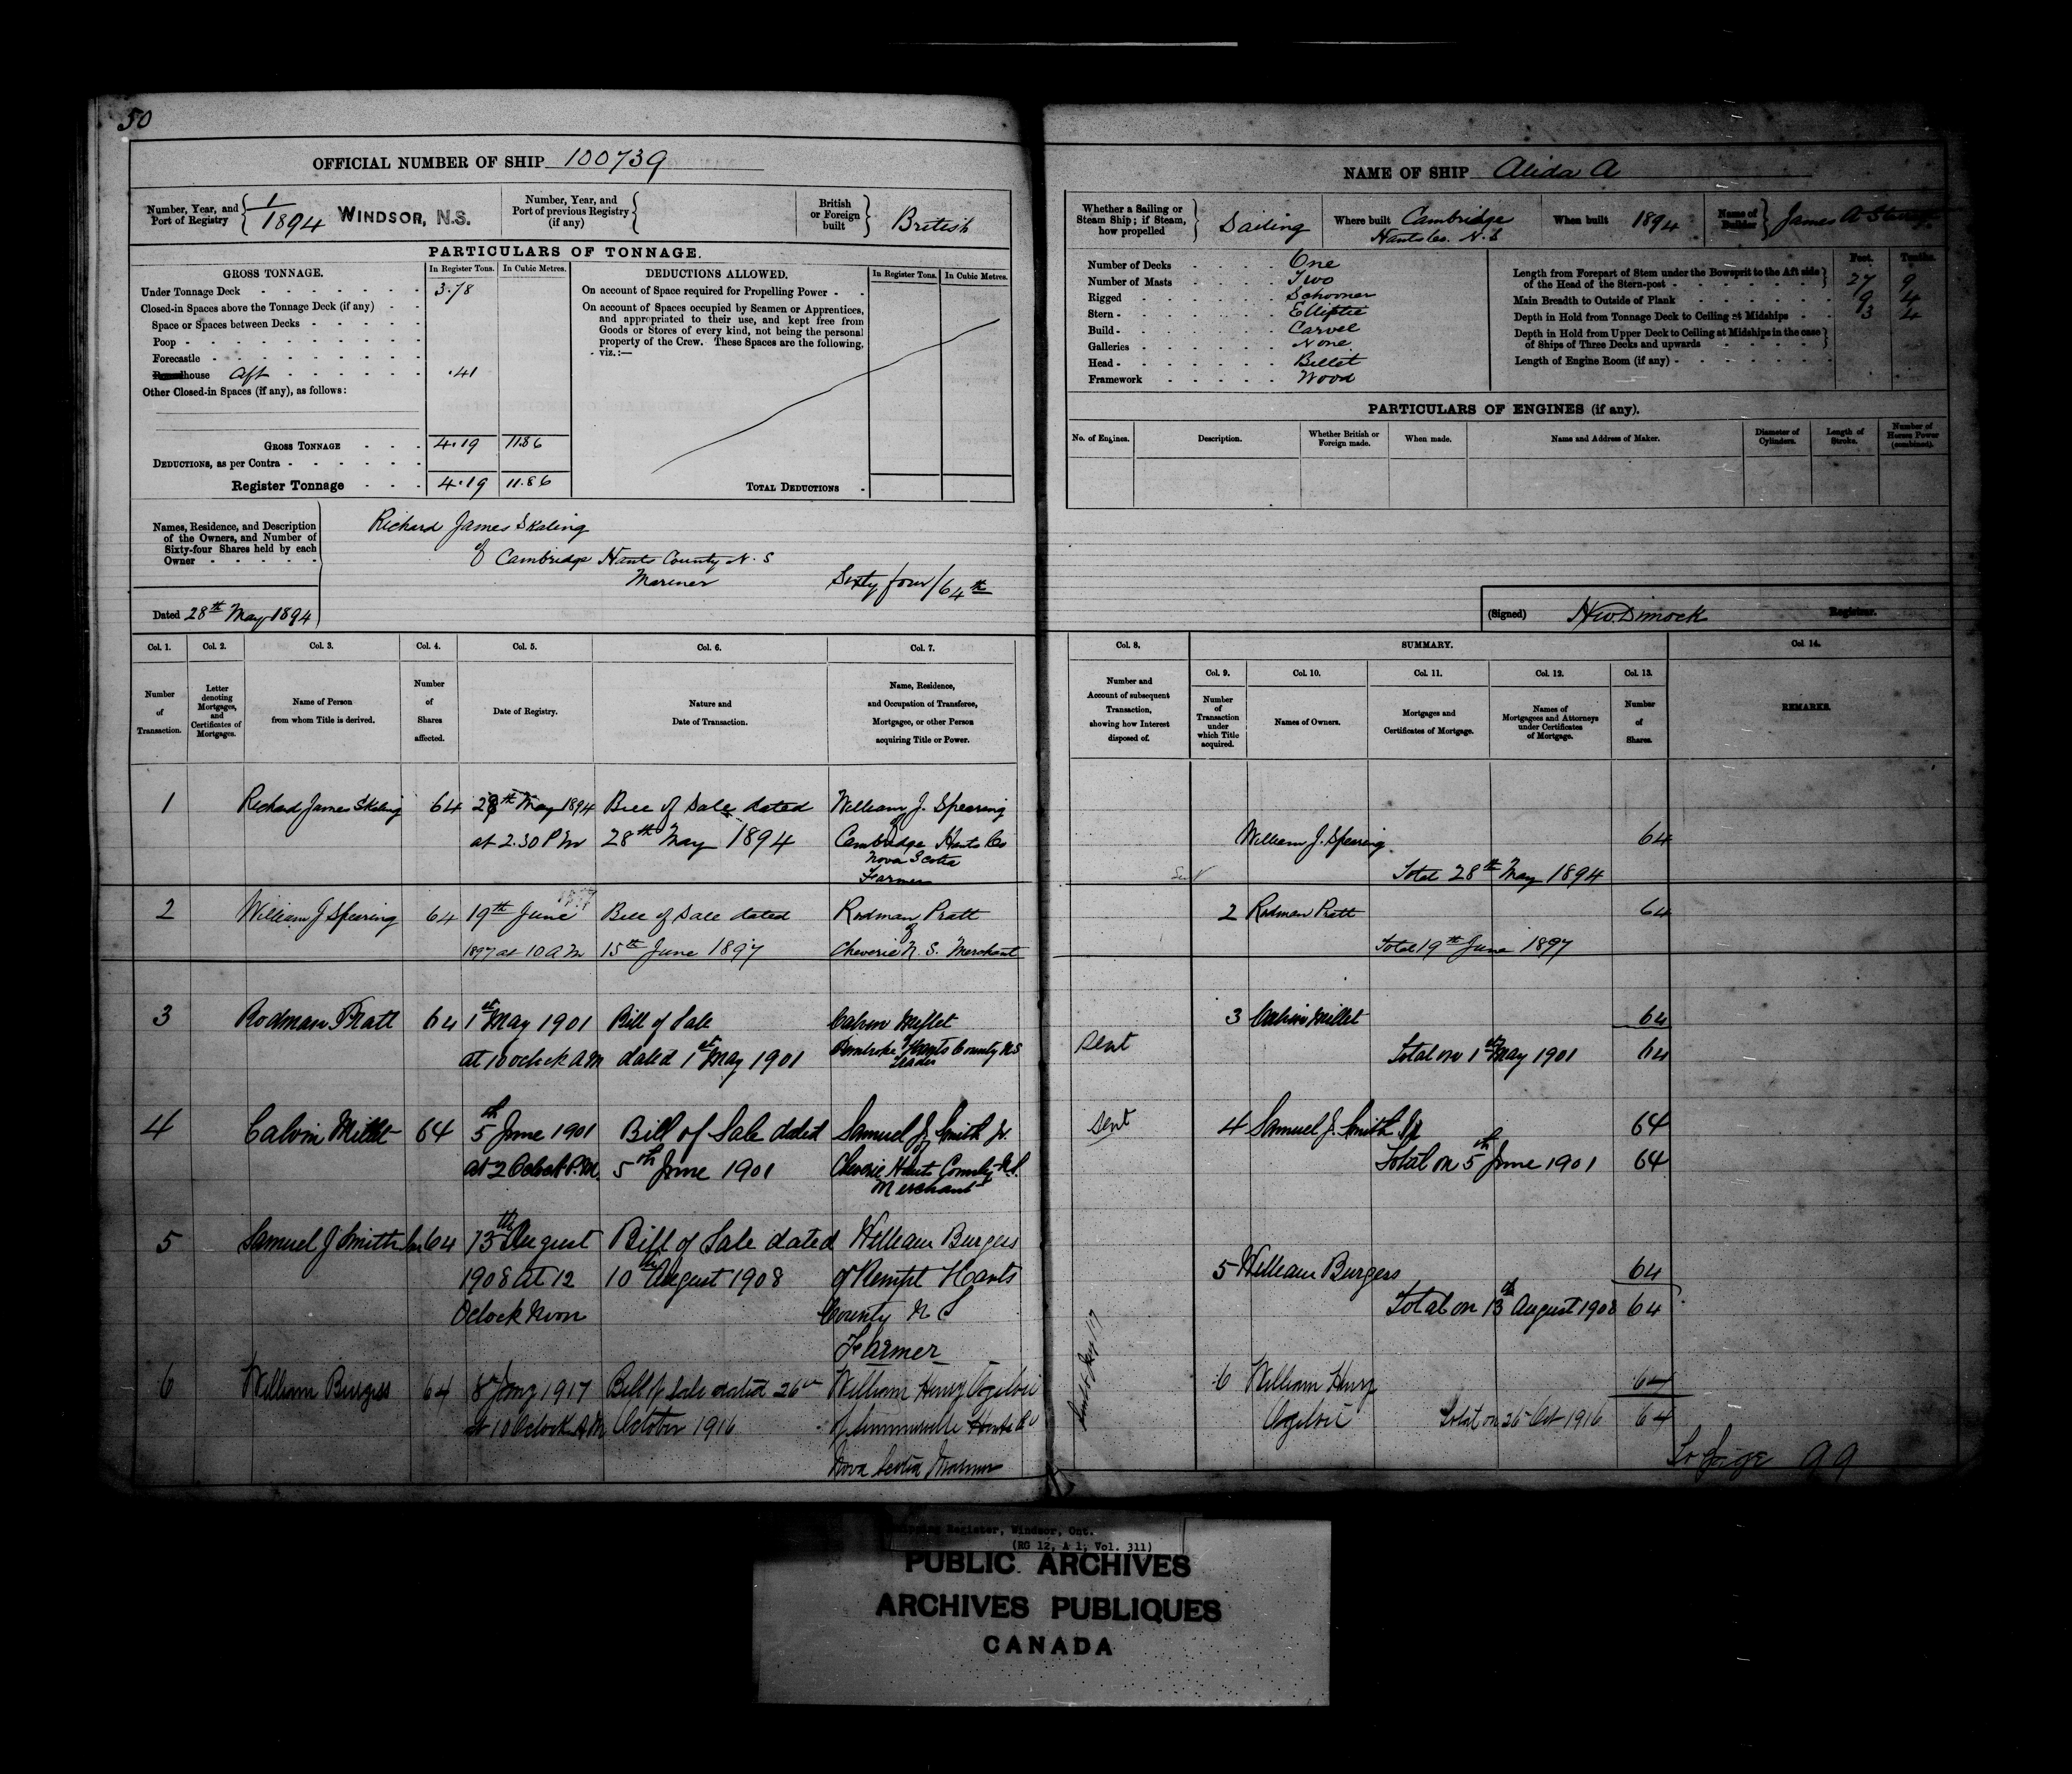 50
OFFICIAL NUMBER OF SHIP 100739
Number, Year, and Port of Registry 1/1894 WINDSOR, N.S.
Number, Year, and Port of previous Registry (if any)
British or Foreign built British
PARTICULARS OF TONNAGE.
GROSS TONNAGE. In Register Tons. In Cubic Metres.
Under Tonnage Deck 3.78
Closed-in Spaces above the Tonnage Deck (if any)
Space or Spaces between Decks
Poop
Forecastle
house Aft .41
Other Closed-in Spaces (if any), as follows:
GROSS TONNAGE 4.19 11.86
DEDUCTIONS, as per Contra
Register Tonnage 4.19 11.86
DEDUCTIONS ALLOWED. In Register Tons. In Cubic Metres.
On account of Space required for Propelling Power
On account of Spaces occupied by Seamen or Apprentices,
and appropriated to their use, and kept free from
Goods or Stores of every kind, not being the personal
property of the Crew. These Spaces are the following,
viz.:—
TOTAL DEDUCTIONS
Names, Residence, and Description
of the Owners, and Number of
Sixty-four Shares held by each
Owner
Richard James Skaling
of Cambridge Hants County N. S
Mariner Sixty four/64th
Dated 28th May 1894
Col. 1. Col. 2. Col. 3. Col. 4. Col. 5. Col. 6. Col. 7.
Number of Transaction.
Letter denoting Mortgages, and Certificates of Mortgages.
Name of Person from whom Title is derived.
Number of Shares affected.
Date of Registry.
Nature and Date of Transaction.
Name, Residence, and Occupation of Transferee, Mortgagee, or other Person acquiring Title or Power.
1 Richard James Skaling 64 28th May 1894 Bill of Sale dated William J. Spearing
at 2.30 P M 28th May 1894 of Cambridge Hants Co
Nova Scotia
Farmer
2 William J Spearing 64 19th June Bill of Sale dated Rodman Pratt
1897 at 10 A M 15th June 1897 of Cheverie N. S. Merchant
3 Rodman Pratt 64 1st May 1901 Bill of Sale Calvin Millet
at 10 oclock A M dated 1st May 1901 Pembroke Hants County N S
Trader
4 Calvin Millet 64 5th June 1901 Bill of Sale dated Samuel J. Smith Jr.
at 2 Oclock P.M. 5th June 1901 Cheverie Hants County N.S.
Merchant
5 Samuel J Smith Jr 64 13th August Bill of Sale dated William Burgess
1908 at 12 10th August 1908 of Kempt Hants
Oclock Noon County N S
Farmer
6 William Burgess 64 8th Jany 1917 Bill of Sale dated 26th William Henry Ogilvie
at 10 Oclock A M October 1916 of Summerville Hants Co
Nova Scotia Mariner
NAME OF SHIP Alida A
Whether a Sailing or Steam Ship; if Steam, how propelled Sailing
Where built Cambridge
Hants Co. N.S
When built 1894
Name of Builder James A
Number of Decks One
Number of Masts Two
Rigged Schooner
Stern Elliptic
Build Carvel
Galleries None
Head Billet
Framework Wood
Feet. Tenths.
Length from Forepart of Stem under the Bowsprit to the Aft side
of the Head of the Stern-post 27 9
Main Breadth to Outside of Plank 9 4
Depth in Hold from Tonnage Deck to Ceiling at Midships 3 2
Depth in Hold from Upper Deck to Ceiling at Midships in the case
of Ships of Three Decks and upwards
Length of Engine Room (if any)
PARTICULARS OF ENGINES (if any).
No. of Engines. Description. Whether British or Foreign made. When made. Name and Address of Maker. Diameter of Cylinders. Length of Stroke. Number of Horses Power (combined).
(Signed) H W Dimock Registrar.
Col. 8. SUMMARY. Col. 14.
Col. 9. Col. 10. Col. 11. Col. 12. Col. 13.
Number and Account of subsequent Transaction, showing how Interest disposed of.
Number of Transaction under which Title acquired.
Names of Owners.
Mortgages and Certificates of Mortgage.
Names of Mortgagees and Attorneys under Certificates of Mortgage.
Number of Shares.
REMARKS.
William J. Spearing 64
Total 28th May 1894
2 Rodman Pratt 64
Total 19th June 1897
3 Calvin Millet 64
Sent Total on 1st May 1901 64
Sent 4 Samuel J. Smith Jr 64
Total on 5th June 1901 64
5 William Burgess 64
Total on 13th August 1908 64
6 William Henry 64
Ogilvie Total on 26 Oct 1916 64
To page 99
Shipping Register, Windsor, Ont.
(RG 12, A 1, Vol. 311)
PUBLIC ARCHIVES
ARCHIVES PUBLIQUES
CANADA